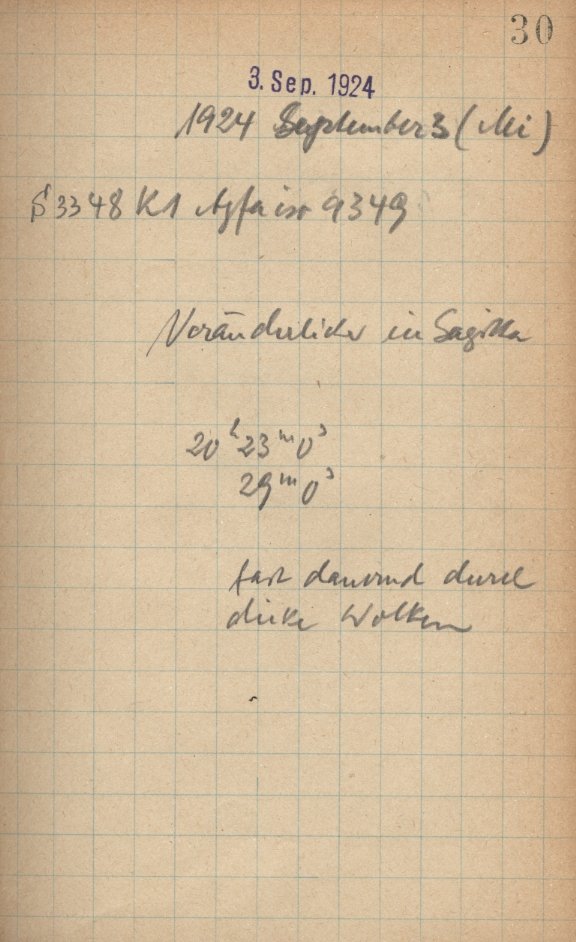 30
3. Sep. 1924
1924 September 3 (Mi)
S 3348 K1 Agfa iso 9349
Veränderlicher in Sagitta
20h 23m 0s
29m 0s
fast dauernd durch
dicke Wolken